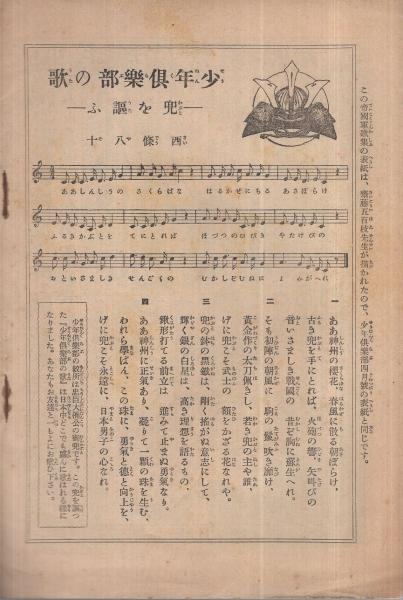 この帝國軍歌集の表紙は、齋藤五百枝先生が描かれたので、少年倶樂部四月號の表紙と同じです。
少年倶樂部の歌
―兜を謳ふ―
西條八十
ああしんしうの さくらばな はるかぜにちる あさぼらけ
ふるきかぶとを てにとれば ほづつのひびき やたけびの
おといさましき せんごくの むかしぞむねに よみがへれ
一
ああ神州の櫻花、春風に散る朝ぼらけ、
古き兜を手にとれば、火砲の響、矢叫びの
音いさましき戰國の 昔ぞ胸に蘇生へれ。
二
そも初陣の朝風に 駒の鬣吹き靡け、
黄金作の太刀佩きし 若き兜の主や誰、
げに兜こそ武士の 額をかざる花なれや。
三
兜の鉢の黑鐵は、剛く搖がぬ意志にして、
輝く銀の白星は、高き理想を語るもの、
鍬形打てる前立は 進みて止まぬ勇氣なり。
四
ああ神州に正氣あり、凝りて一顆の珠を生む、
われら學ばん、この珠に、勇氣と德と向上を、
げに兜こそ永遠に、日本男子の心なれ。
少年倶樂部の紋所は忠臣大楠公の
この兜を謳つ
た『少年倶樂部の歌』は日本中どこでも盛んに歌はれる樣に
なりました。あなたもお友達と一しよにお歌ひ下さい。